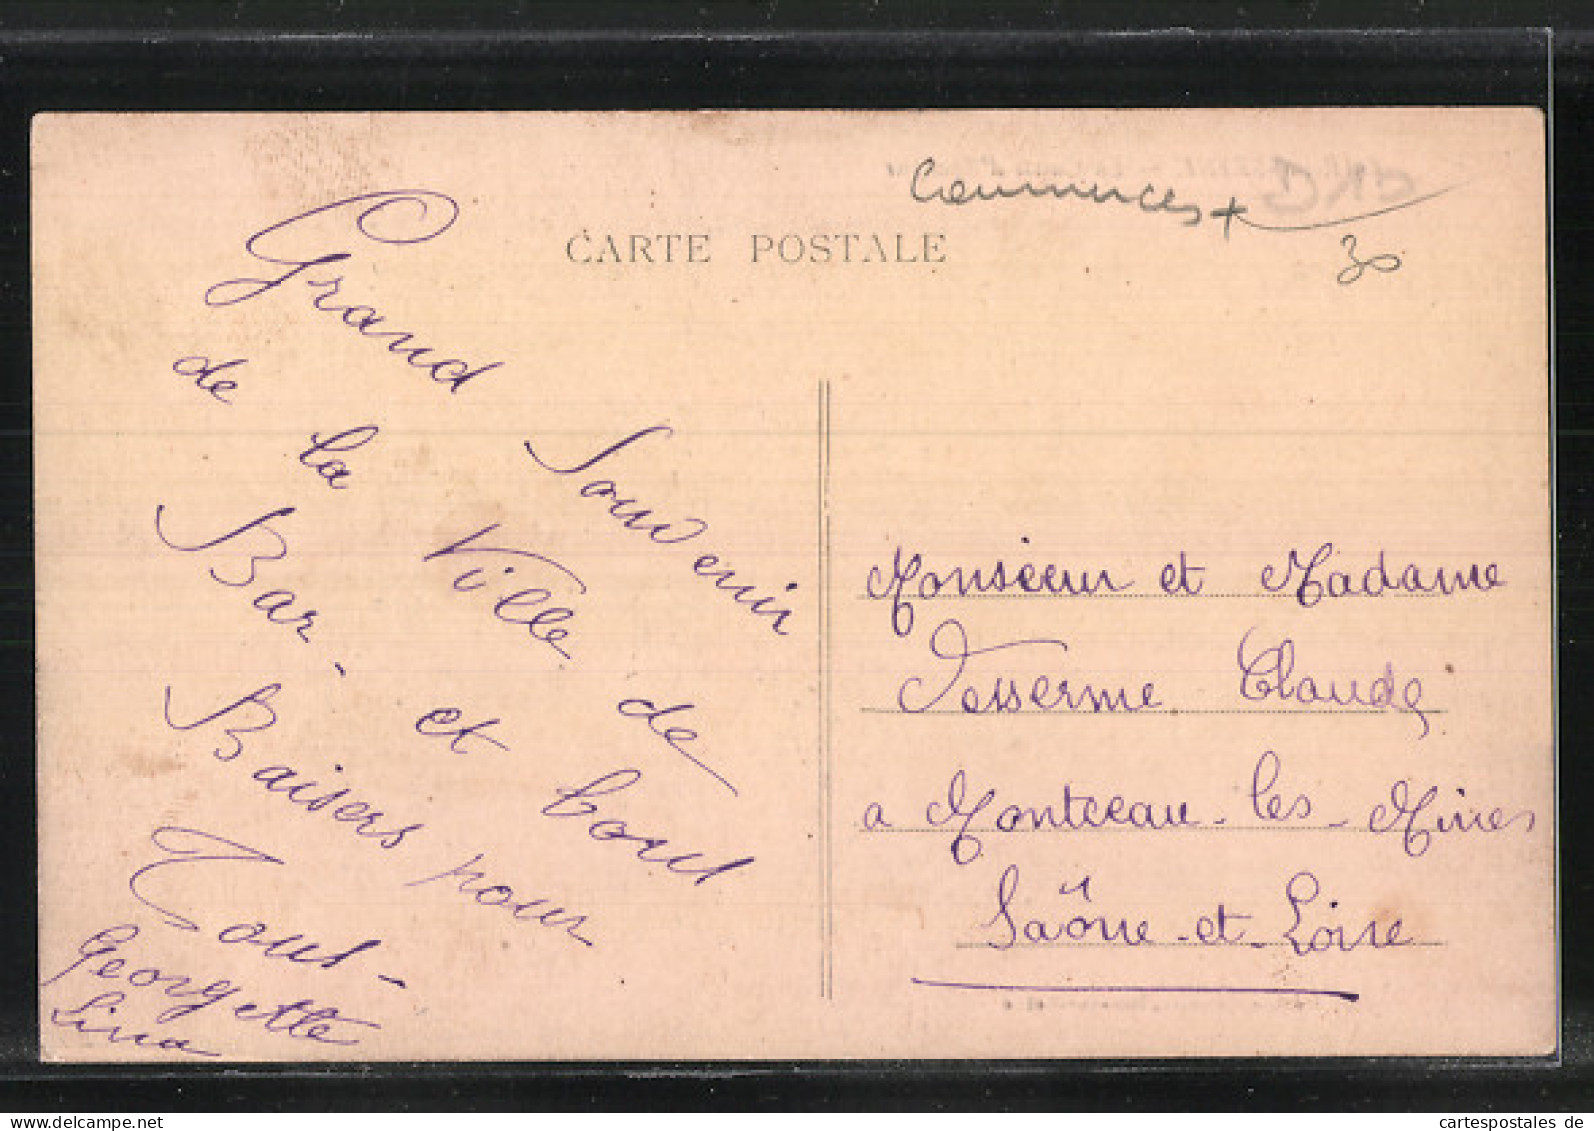 Commerces +
30
CARTE POSTALE
Grand Souvenir
de la Ville de
Bar - et bout
Baisers pour
Tout -
Georgette
Lina
Monsieur et Madame
Tesserme Claude
a Montceau - les - Mines
Saône - et - Loire
www.delcampe.net
cartespostales de